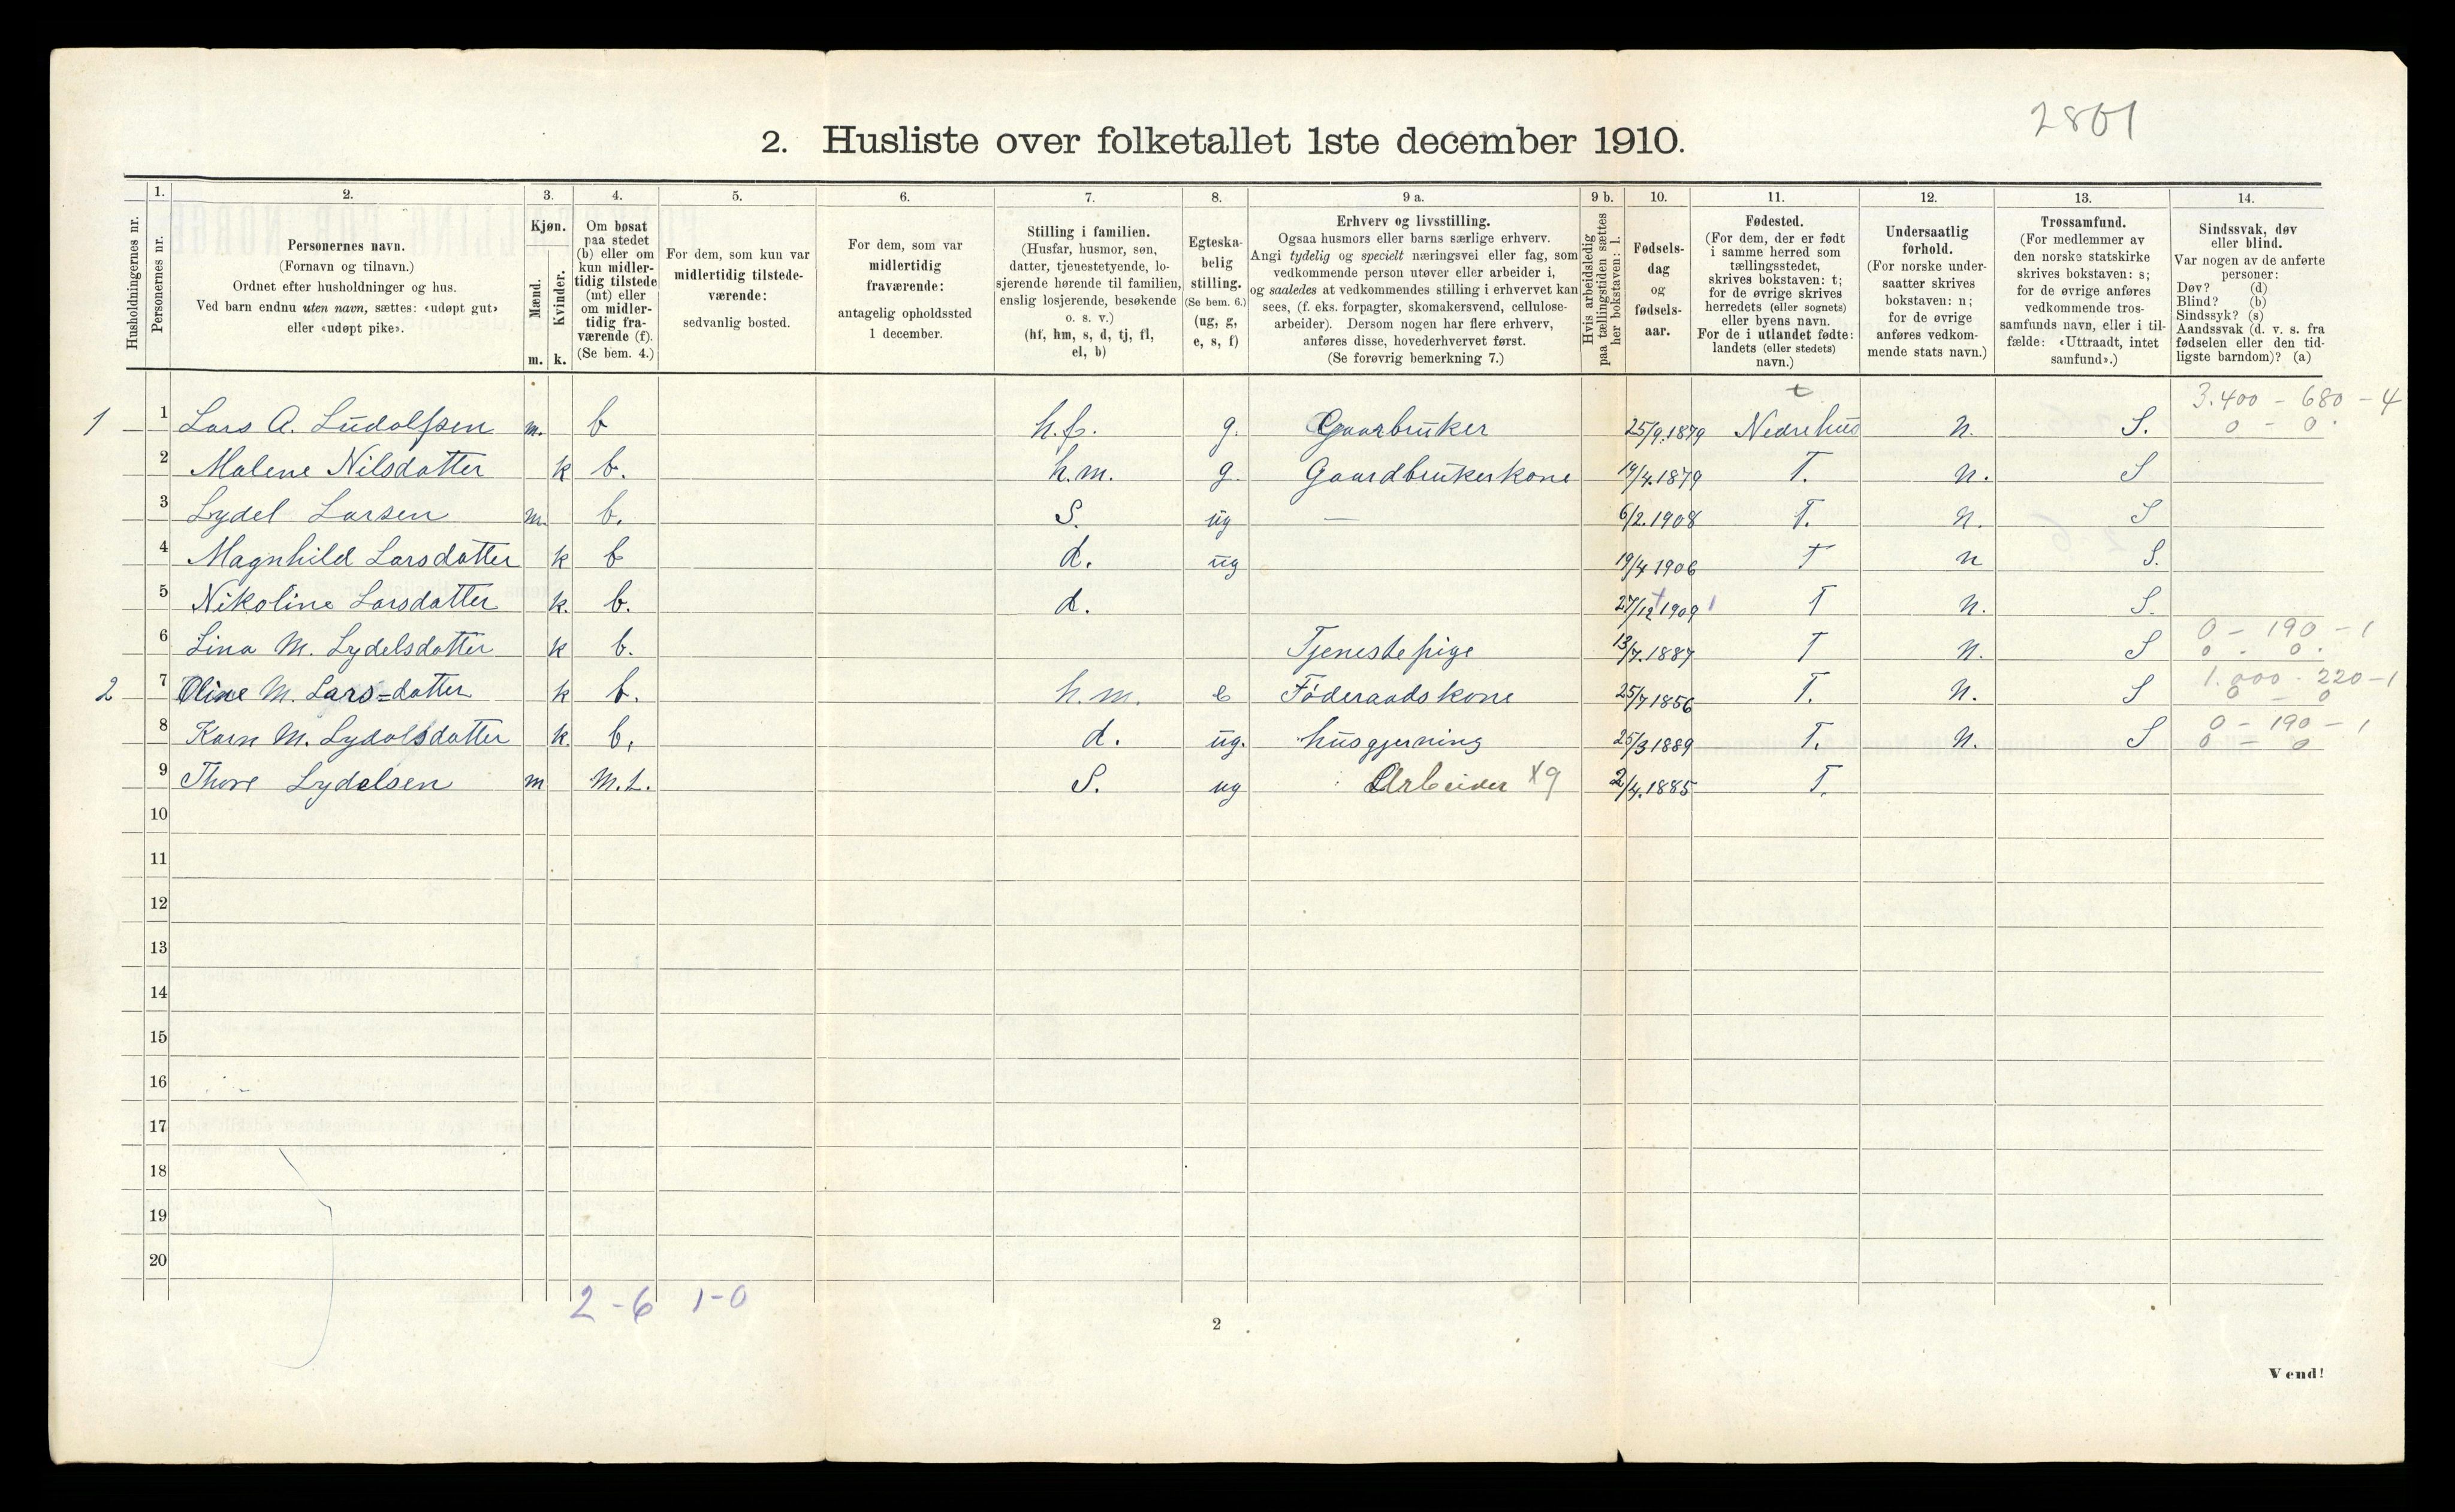 2801
2. Husliste over folketallet 1ste december 1910.
Husholdningernes nr.
1.
Personernes nr.
2.
Personernes navn.
(Fornavn og tilnavn.)
Ordnet efter husholdninger og hus.
Ved barn endnu uten navn, sættes: «udøpt gut»
eller «udøpt pike».
3.
Kjøn.
Mænd.
Kvinder.
m. k.
4.
Om bosat
paa stedet
(b) eller om
kun midler-
tidig tilstede
(mt) eller
om midler-
tidig fra-
værende (f).
(Se bem. 4.)
5.
For dem, som kun var
midlertidig tilstede-
værende:
sedvanlig bosted.
6.
For dem, som var
midlertidig
fraværende:
antagelig opholdssted
1 december.
7.
Stilling i familien.
(Husfar, husmor, søn,
datter, tjenestetyende, lo-
sjerende hørende til familien,
enslig losjerende, besøkende
o. s. v.)
(hf, hm, s, d, tj, fl,
el, b)
8.
Egteska-
belig
stilling.
(Se bem. 6.)
(ug, g,
e, s, f)
9 a.
Erhverv og livsstilling.
Ogsaa husmors eller barns særlige erhverv.
Angi tydelig og specielt næringsvei eller fag, som
vedkommende person utøver eller arbeider i,
og saaledes at vedkommendes stilling i erhvervet kan
sees, (f. eks. forpagter, skomakersvend, cellulose-
arbeider). Dersom nogen har flere erhverv,
anføres disse, hovederhvervet først.
(Se forøvrig bemerkning 7.)
9 b.
Hvis arbeidsledig
paa tællingstiden sættes
her bokstaven: l.
10.
Fødsels-
dag
og
fødsels-
aar.
11.
Fødested.
(For dem, der er født
i samme herred som
tællingsstedet,
skrives bokstaven: t;
for de øvrige skrives
herredets (eller sognets)
eller byens navn.
For de i utlandet fødte:
landets (eller stedets)
navn.)
12.
Undersaatlig
forhold.
(For norske under-
saatter skrives
bokstaven: n;
for de øvrige
anføres vedkom-
mende stats navn.)
13.
Trossamfund.
(For medlemmer av
den norske statskirke
skrives bokstaven: s;
for de øvrige anføres
vedkommende tros-
samfunds navn, eller i til-
fælde: «Uttraadt, intet
samfund».)
14.
Sindssvak, døv
eller blind.
Var nogen av de anførte
personer:
Døv? (d)
Blind? (b)
Sindssyk? (s)
Aandssvak (d. v. s. fra
fødselen eller den tid-
ligste barndom)? (a)
t 3.400 - 680 - 4
1 1 Lars A. Ludolfsen m. b h.f. g. Gaarbruker 25/9.1879 Nedrehus n. S. 0 - 0.
2 Malene Nilsdatter k b. h.m. g. Gaardbrukerkone 19/4.1879 T. n. S
3 Lydel Larsen m. b. S. ug — 6/2.1908 T. n. S
4 Magnhild Larsdatter k b d. ug 19/4 1906 T n S.
5 Nikoline Larsdatter k. b. d. 27/12 1909 T n. S.
0 - 190 - 1
6 Lina M. Lydelsdatter k b. Tjenestepige 13/7.1887 T n. S 0 - 0.
1.000 - 220 - 1
2 7 Oline M. Lars=datter k b. h.m. e Föderaadskone 25/7 1856 T. n. S 0 - 0
0 - 190 - 1
8 Karn M. Lydalsdatter k. b, d. ug. husgjerning 25/3 1889 T. n. S 0 - 0
9 Thore Lydelsen m M.t. S. ug Arbeider X9 2/4.1885 T.
10
11
12
13
14
15
16
17
18
19
20
2 - 6 1 - 0
2
Vend!